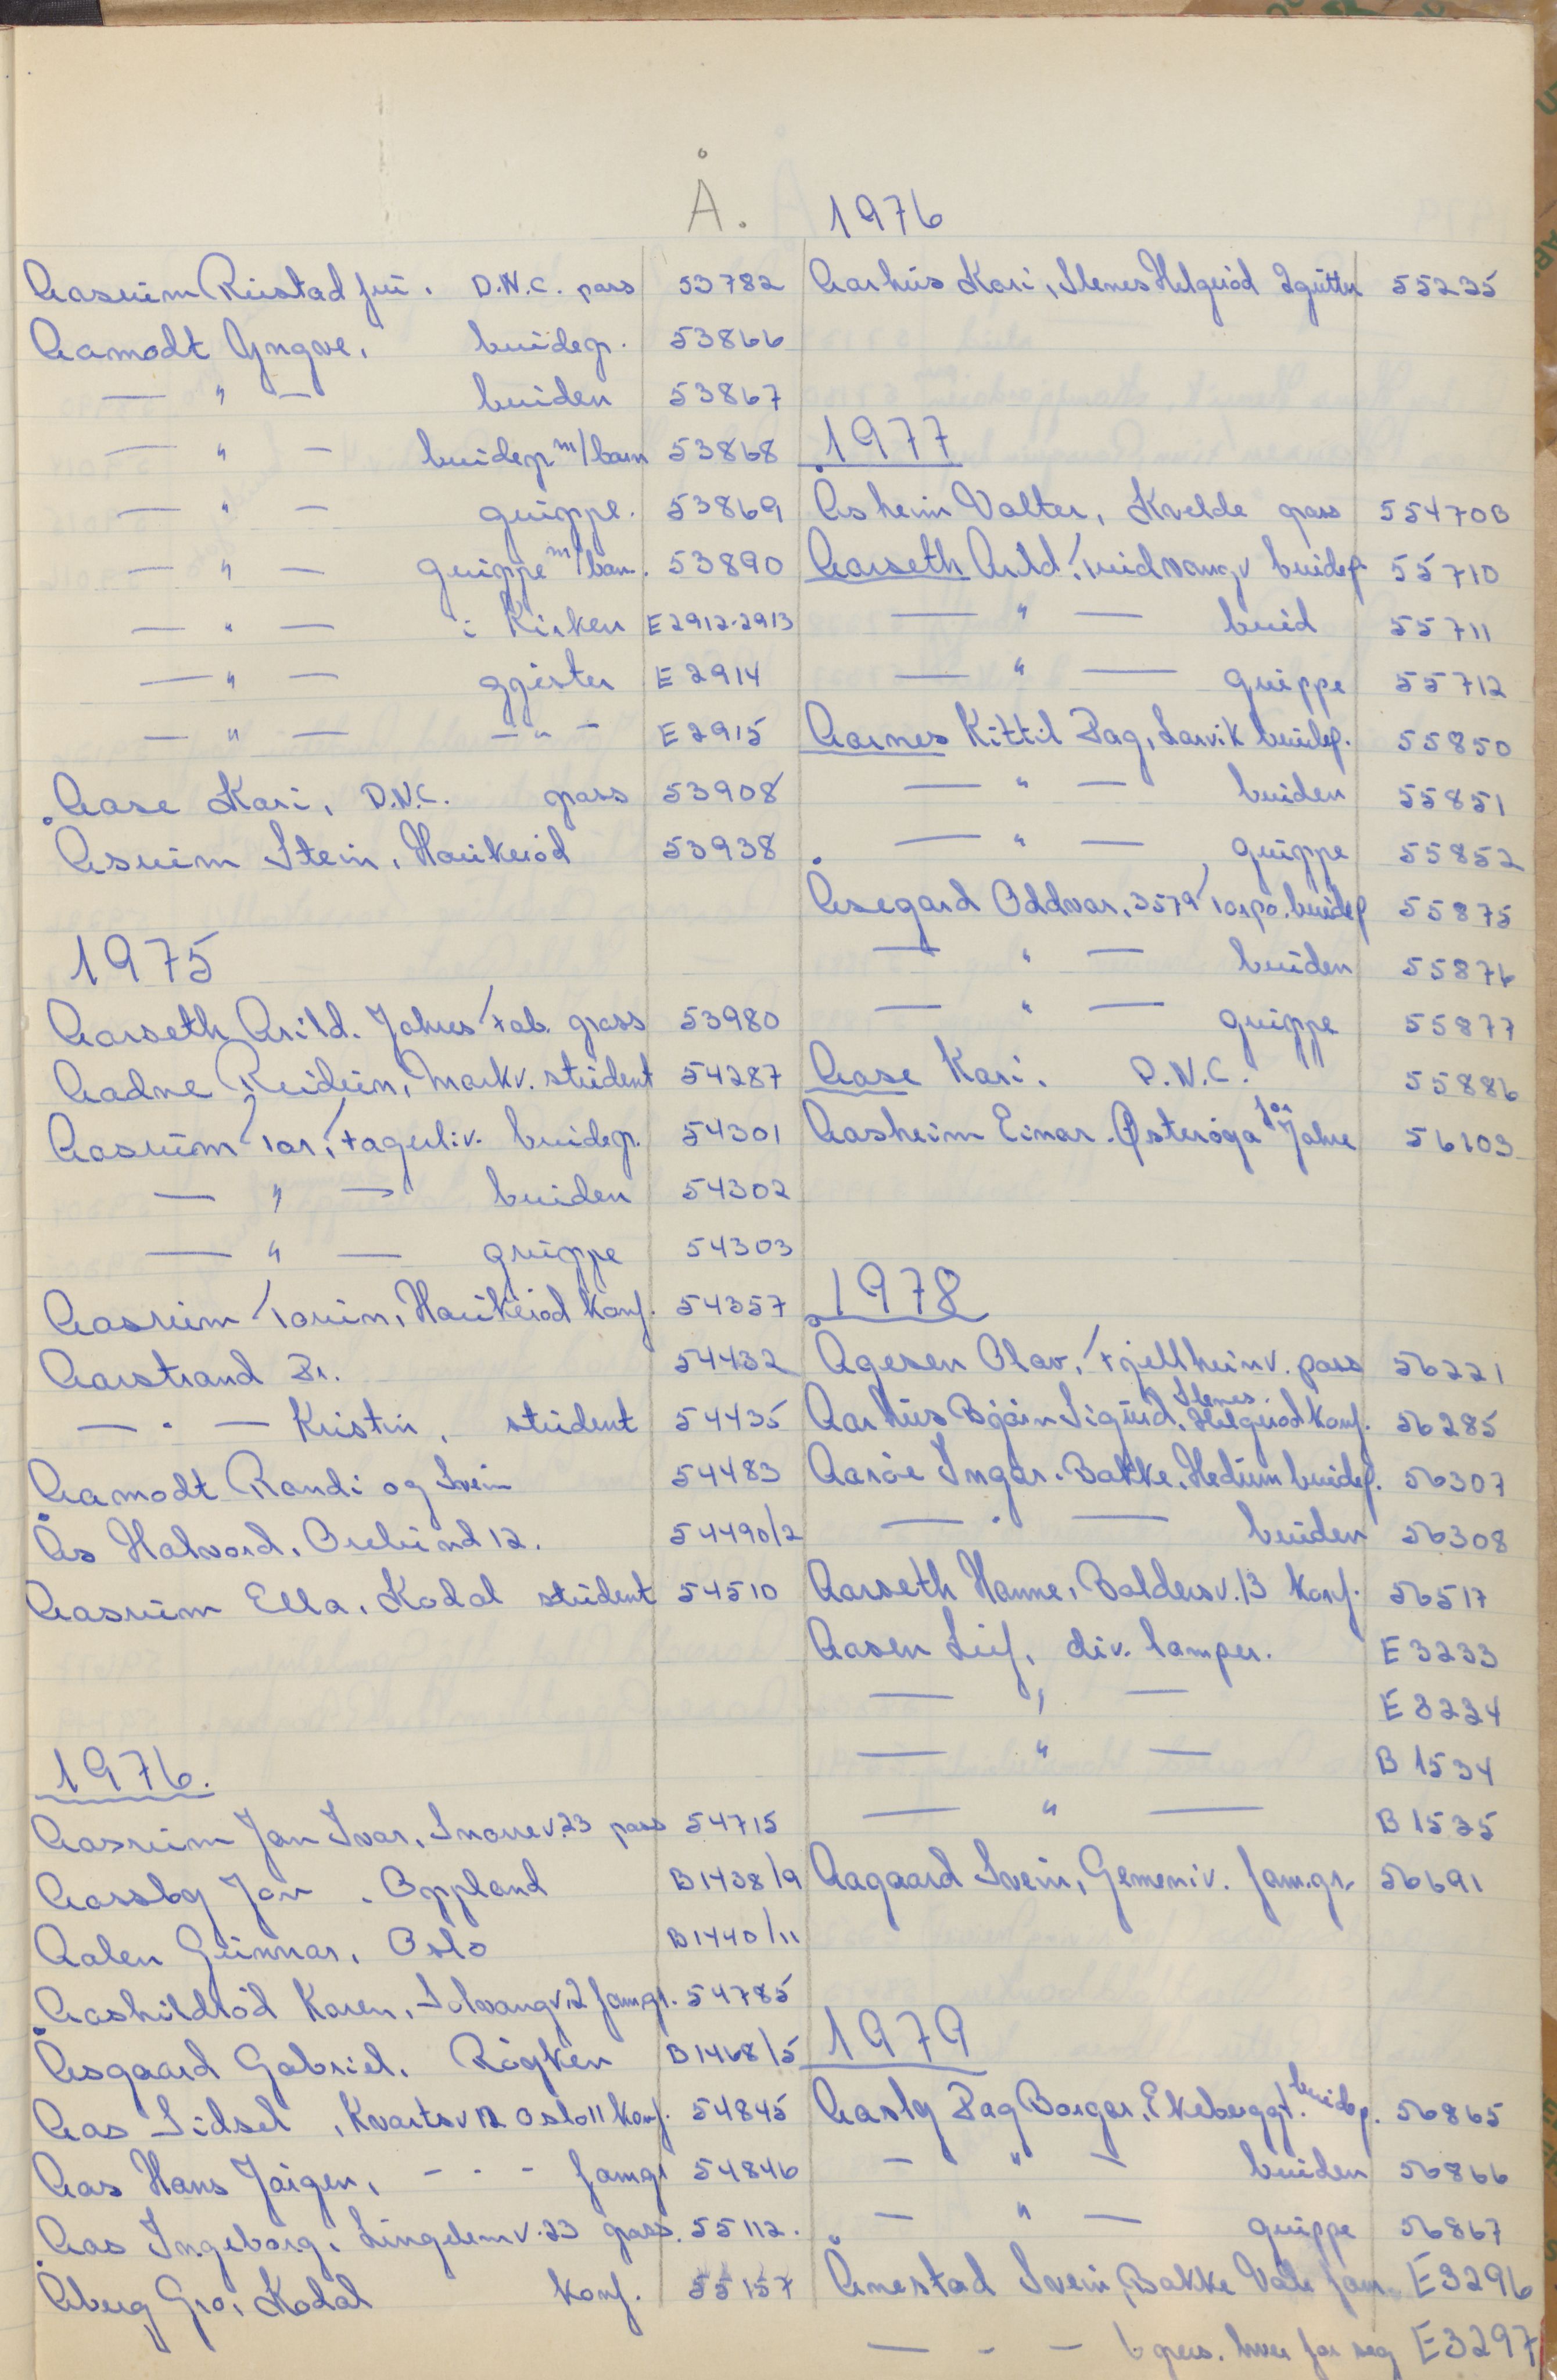 Å.
Aasrum Rustad fru. D.N.C. pass 53782
Aamodt Yngve. brudep. 53866
— " — bruden 53867
— " — brudep m/barn 53868
— " — gruppe. 53869
— " — gruppe m/barn. 53890
— " — i Kirken E2912-2913
— " — gjester E2914
— " — — " — E2915
Aase Kari, D.N.C. pass 53908
Åsrum Stein, Haukerød 53938
1975
Aarseth Arild. Jahres Fab. pass 53980
Aadne Reidun, Markv. student 54287
Aasrum Tor, Fagerliv. brudep. 54301
— " — bruden 54302
— " — gruppe 54303
Aasrum Torun, Haukerød konf. 54357
Aarstrand Br. 54432
— " — Kristin, student 54435
Aamodt Randi og Svein 54483
Ås Halvord, Orelund 12. 54490/2
Aasrum Ella, Kodal student 54510
1976.
Aasrum Jan Ivar, Snorrev. 23 pass 54715
Aassby Jan. Oppland B1438/9
Aalen Gunnar, Oslo B1440/11
Aashildrød Karen, Solvangv. 2 famgr. 54785
Åsgaard Gabriel, Røyken B1468/5
Aas Sidsel, Kvartsv 12 Oslo 11 konf. 54845
Aas Hans Jørgen, - " - famgr 54846
Aas Ingeborg, Lingelemv. 23 pass. 55112.
Åberg Gro, Kodal konf. 55157
1976
Aarhus Kari, Stenes Helgerød 2 gutter 55235
1977
Åsheim Valter, Kvelde pass 55470B
Aarseth Arild, Tuidvangv brudep. 55710
— " — brud 55711
— " — gruppe 55712
Aarnes Kittil Dag, Larvik brudep. 55850
— " — bruden 55851
— " — gruppe 55852
Åsegard Oddvar, 3579 Torpo. brudep 55875
— " — bruden 55876
— " — gruppe 55877
Aase Kari. D.N.C. 55886
Aasheim Einar. Østerøya for Jahre 56103
1978
Ågesen Olav, Fjellheimv. pass 56221
Aarhus Bjørn Sigurd, Stenes Helgerød konf. 56285
Aarøe Ingar. Bakke, Hedrum brudep. 56307
— " — bruden 56308
Aarseth Hanne, Baldersv. 13 konf. 56517
Aasen Leif, div. lamper. E3233
— " — E3234
— " — B1534
— " — B1535
Aagaard Svein, Gemeniv. fam.gr. 56691
1979
Aasly Dag Borgar, Ekeberggt. brudep. 56865
— " — bruden 56866
— " — gruppe 56867
Åmestad Svein, Bakke Våle fam E3296
— - — 6 pers. hver for seg E3297